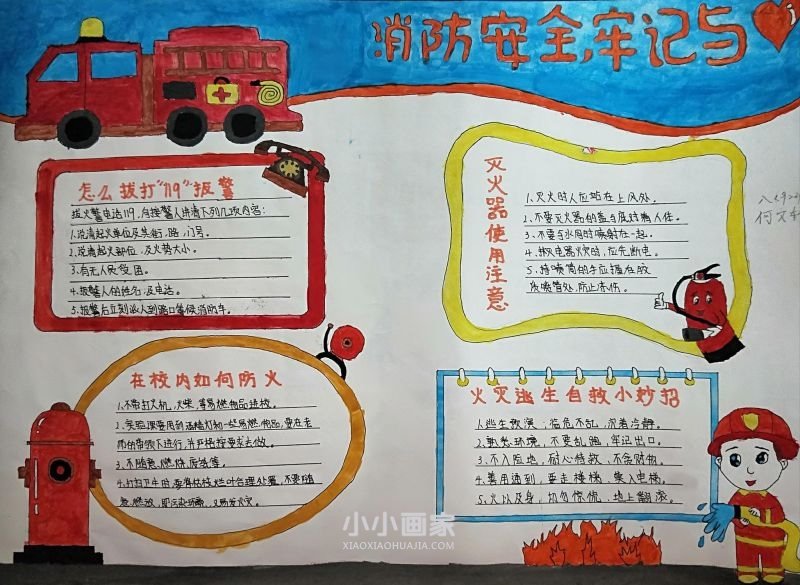 消防安全,牢记与
怎么拔打"119"报警
拔火警电话119,向接警人讲清下列几项内容:
1.说清起火单位及其街、路、门号。
2.说清起火部位,及火势大小。
3.有无人员
4.报警人的姓名,及电话。
5.报警后立刻派人到路口等候消防车。
灭火器使用注意
1.灭火时人应站在上风处。
2.不要灭火器的盖与底对着人体。
3.不要与水同时喷射在一起。
4.扑电器火灾时,应先断电。
5.持喷筒的手应握在胶
质喷管处,防止冻伤。
在校内如何防火
1.不带打火机,火柴,等易燃物品进校。
2.实验课要用到酒精灯和一些易燃物品,要在老
师的带领下进行,并严格按要求去做。
3.不随意燃烧
4.打扫卫生时,要将枯枝烂叶合理处置,不要随
意燃放,即污染
火灭逃生自救小妙招
1.逃生预演:临危不乱,沉着冷静。
2.熟悉环境,不要乱跑,牢记出口。
3.不入险地,耐心待救,不贪财物。
4.善用通道,要走楼梯,乘入电梯。
5.火以及身,切勿惊慌,地上翻滚。
小小画家
XIAOXIAOHUAJIA.COM